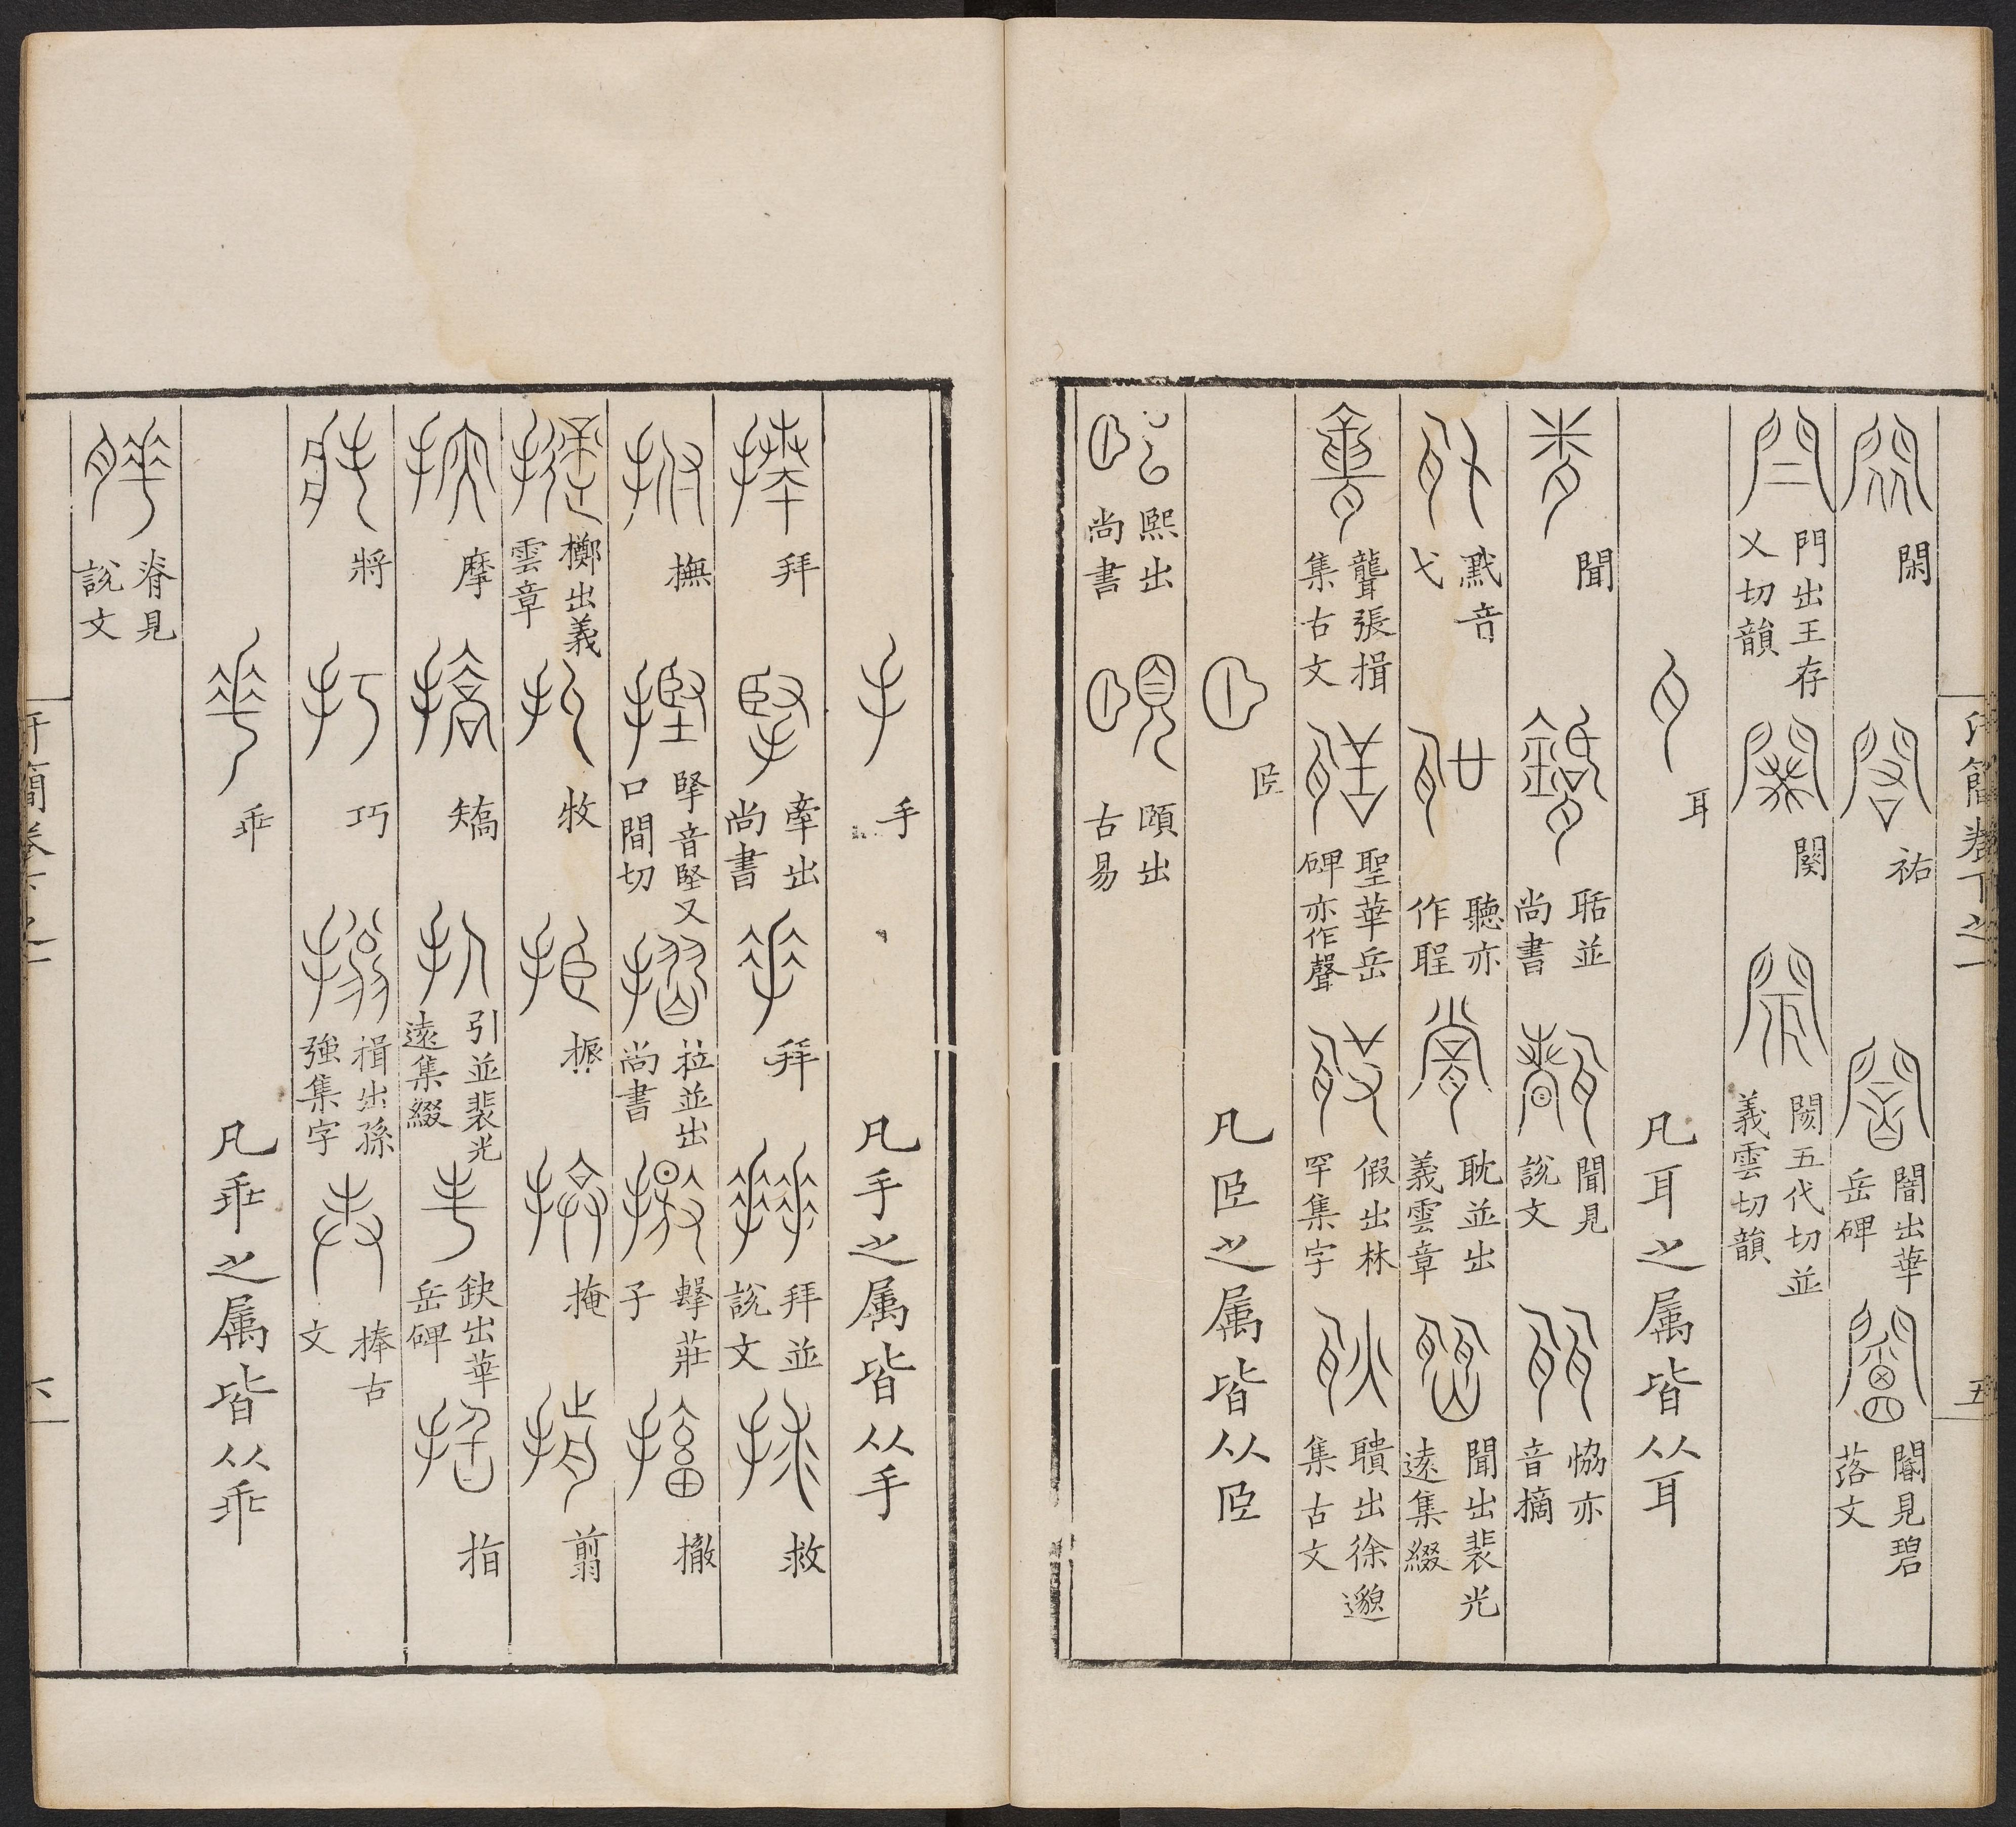 汗簡卷下之一
五
閑 祐 闇出華岳碑 闇見碧落文
門出王存乂切韻 闋 閡五代切並義雲切韻
耳 凡耳之属皆从耳
聞 聒並尚書 聞見說文 恊亦音摘
戜音弋 聽亦作聖 耽並出義雲章 聞出裴光遠集綴
聾張揖集古文 聖華岳碑亦作聲 假出林罕集字 聵出徐邈集古文
𦣞 凡𦣞之属皆从𦣞
熙出尚書 頤出古易
手 凡手之属皆从手
拜 牽出尚書 拜 拜並說文 救
撫 掔音堅又口間切 拉並出尚書 擊莊子 撤
擲出義雲章 牧 振 掩 翦
摩 矯 引並裴光遠集綴 鈌出華岳碑 指
將 巧 揖出孫強集字 捧古文
𠦬 凡𠦬之属皆从𠦬
脊見說文
汗簡卷下之一
六